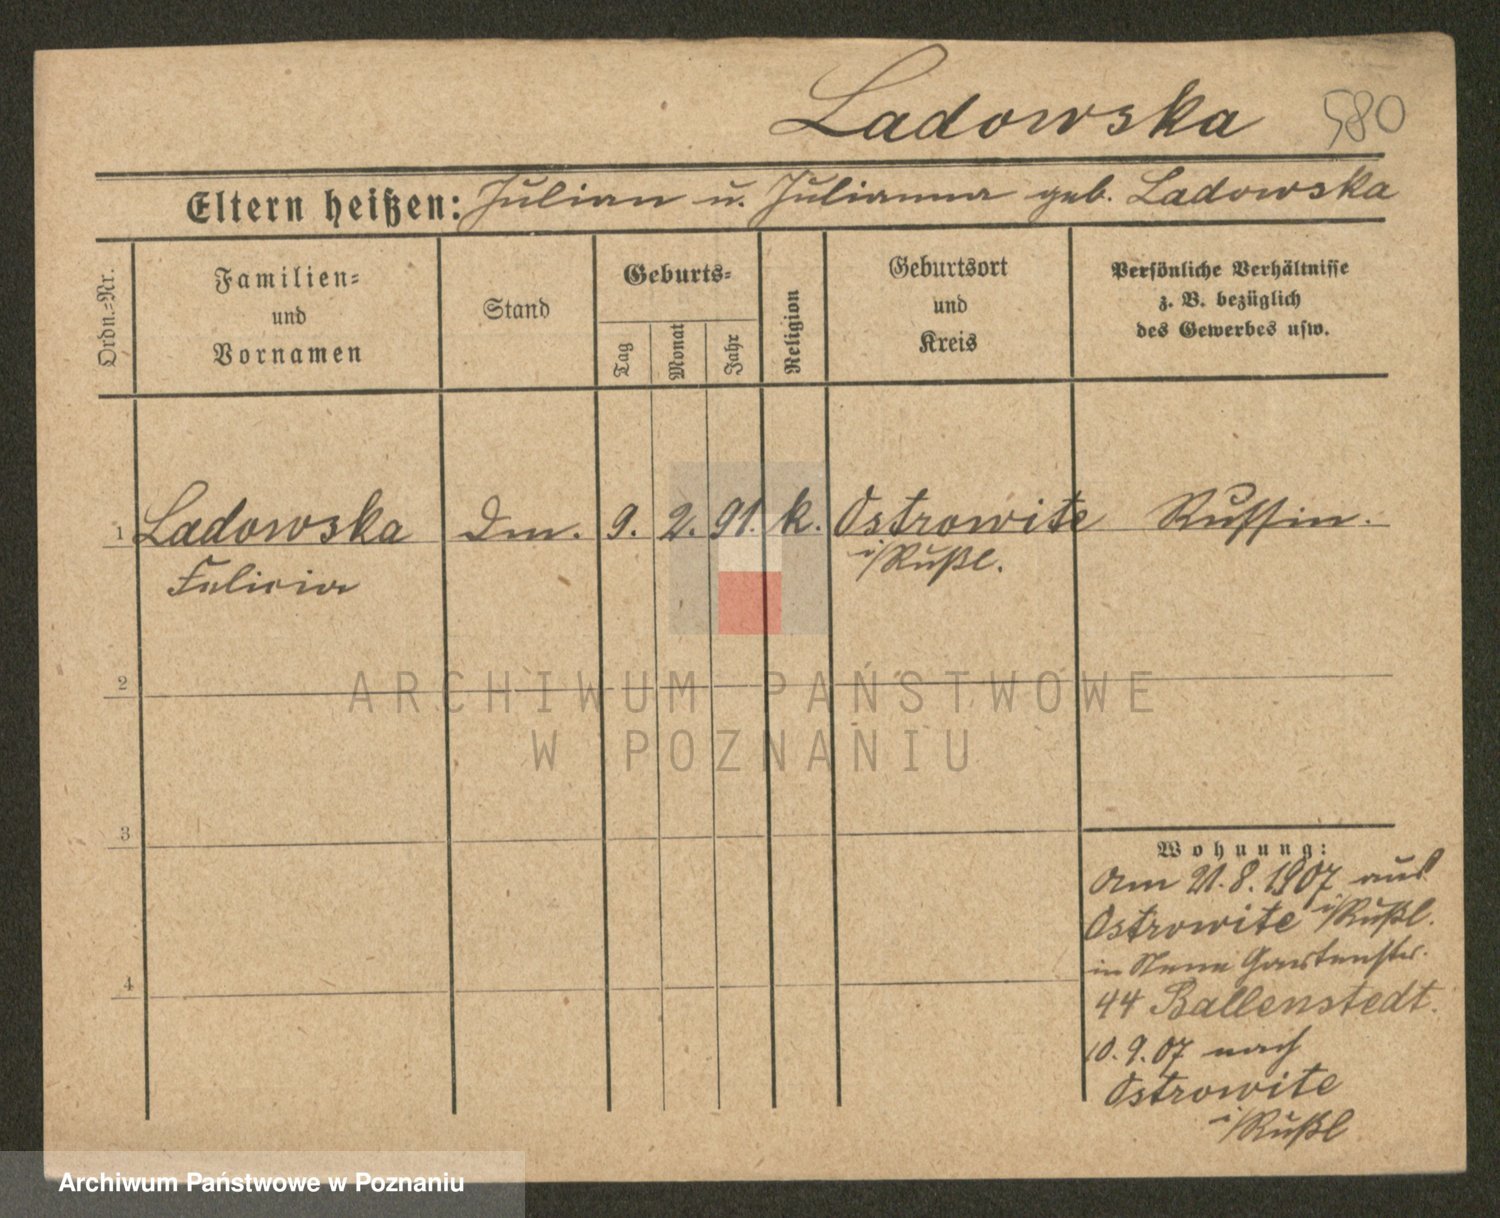 Ladowska 580
Eltern heißen: Julian u. Julianna geb. Ladowska
Ordn.-Nr.
Familien-
und
Vornamen
Stand
Geburts-
Tag
Monat
Jahr
Religion
Geburtsort
und
Kreis
Persönliche Verhältnisse
z. B. bezüglich
des Gewerbes usw.
1 Ladowska 9. 2. 91. k. Ostrowite Russin.
Felicia i/Rußl.
2
ARCHIWUM PAŃSTWOWE
W POZNANIU
3
4
Wohnung:
Am 21.8.1907 aus
Ostrowite i/Rußl.
in Neue Gartenstr.
44 Ballenstedt.
10.9.07 nach
Ostrowite
i/Rußl
Archiwum Państwowe w Poznaniu